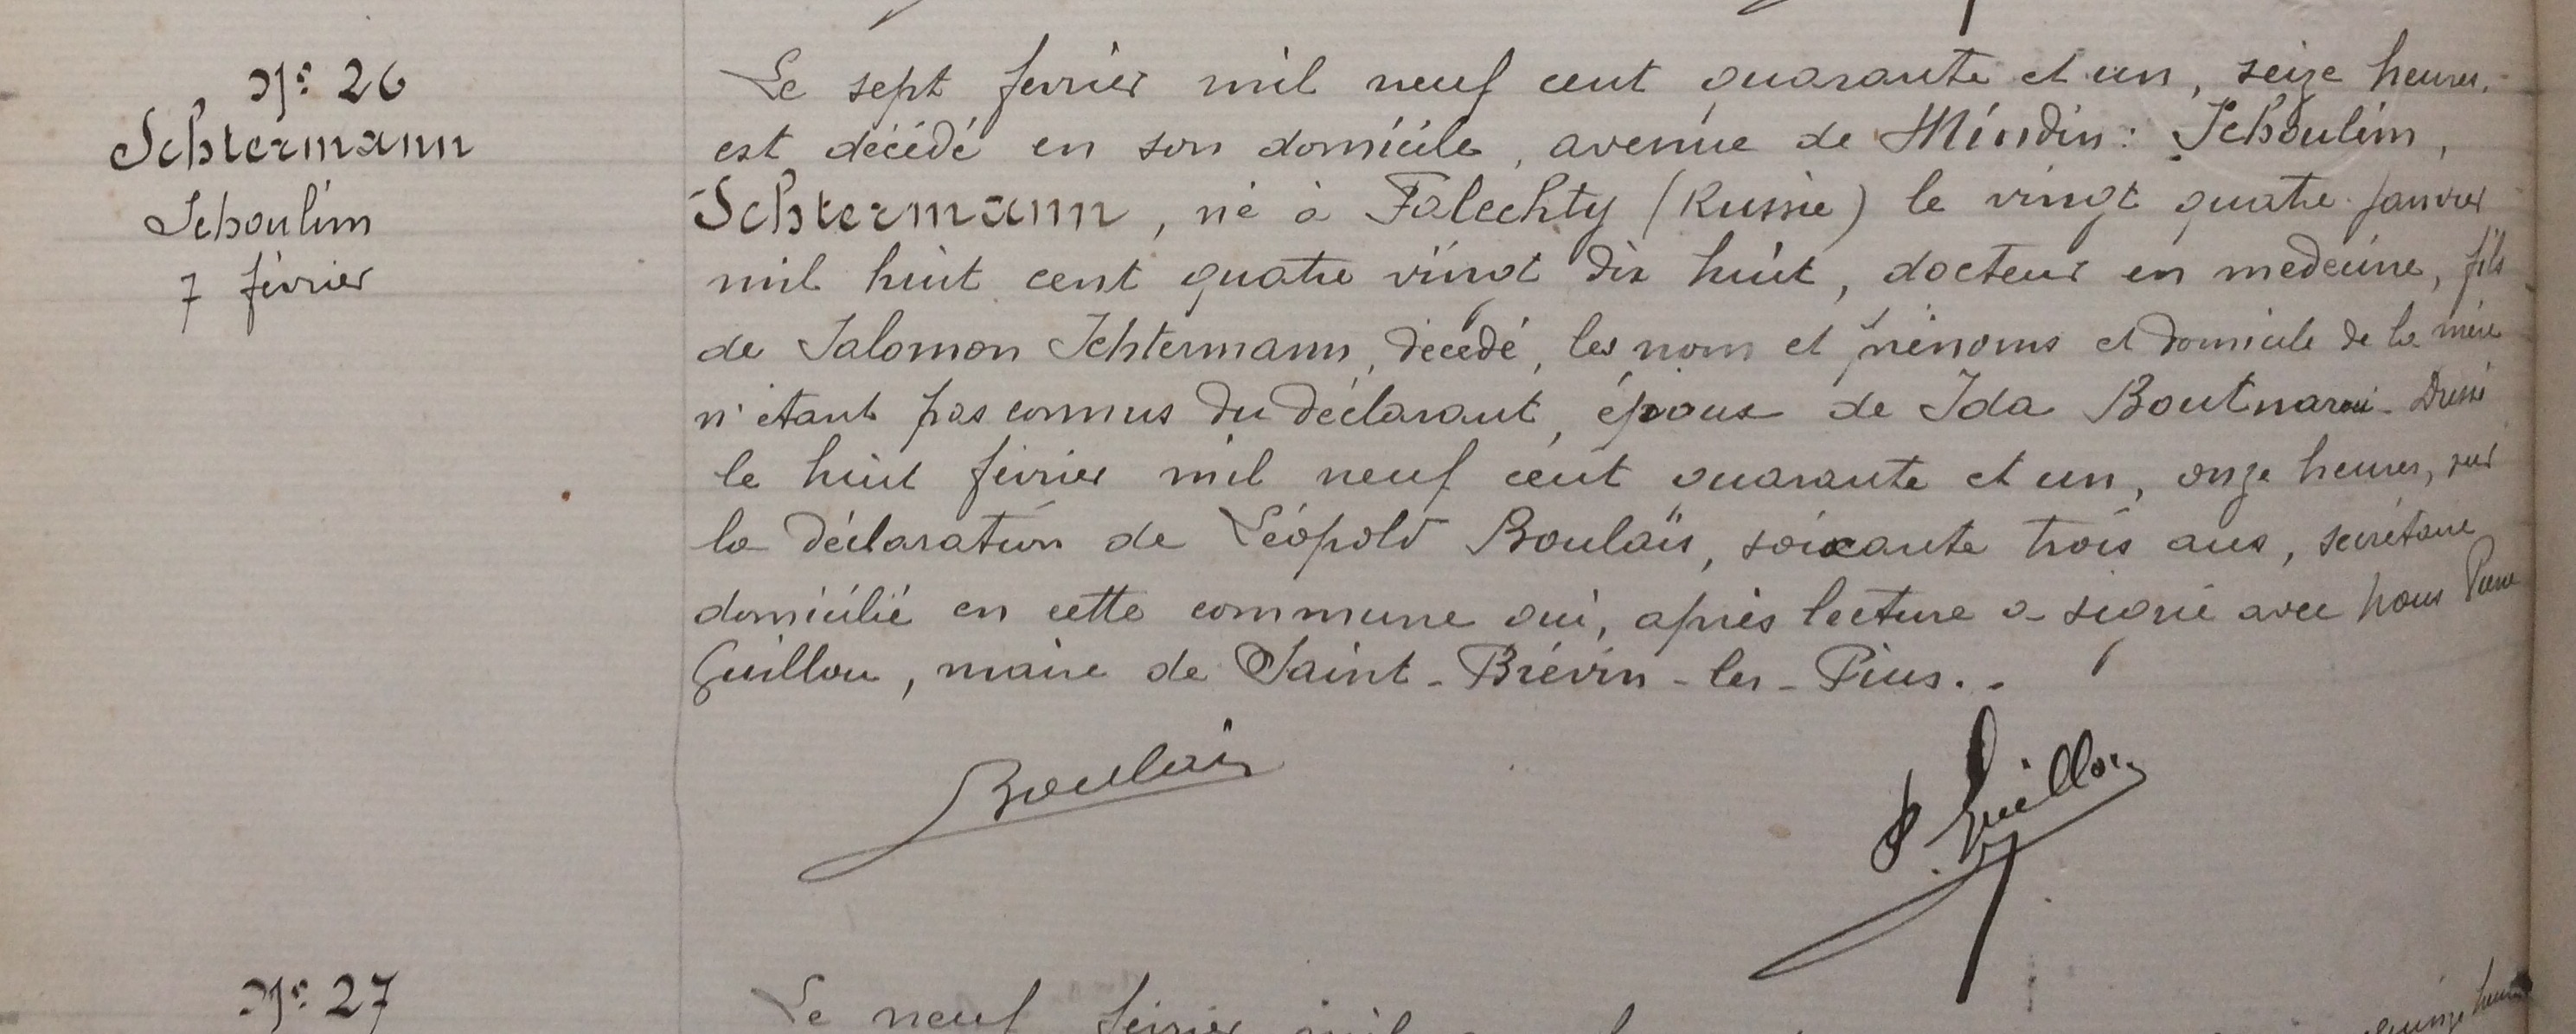 N° 26
Schtermann
Schoulim
7 février
Le sept février mil neuf cent quarante et un, seize heures,
est décédé en son domicile, avenue de Mindin : Schoulim,
Schtermann, né à Falechty (Russie) le vingt quatre janvier
mil huit cent quatre vingt dix huit, docteur en médecine, fils
de Salomon Schtermann, décédé, les nom et prénoms et domicile de la mère
n'étant pas connus du déclarant, époux de Ida Boutnarui. Dressé
le huit février mil neuf cent quarante et un, onze heures, sur
la déclaration de Léopold Boulais, soixante trois ans, secrétaire
domicilié en cette commune qui, après lecture a signé avec Nous Pierre
Guillou, maire de Saint-Brévin-les-Pins..
Boulais
P. Guillou
N° 27
Le neuf février mil quinze heures